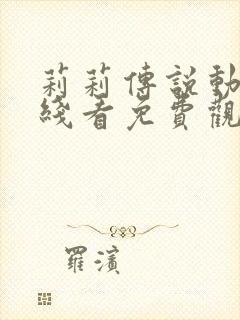 莉莉傳說動
綫看免費觀
羅濱